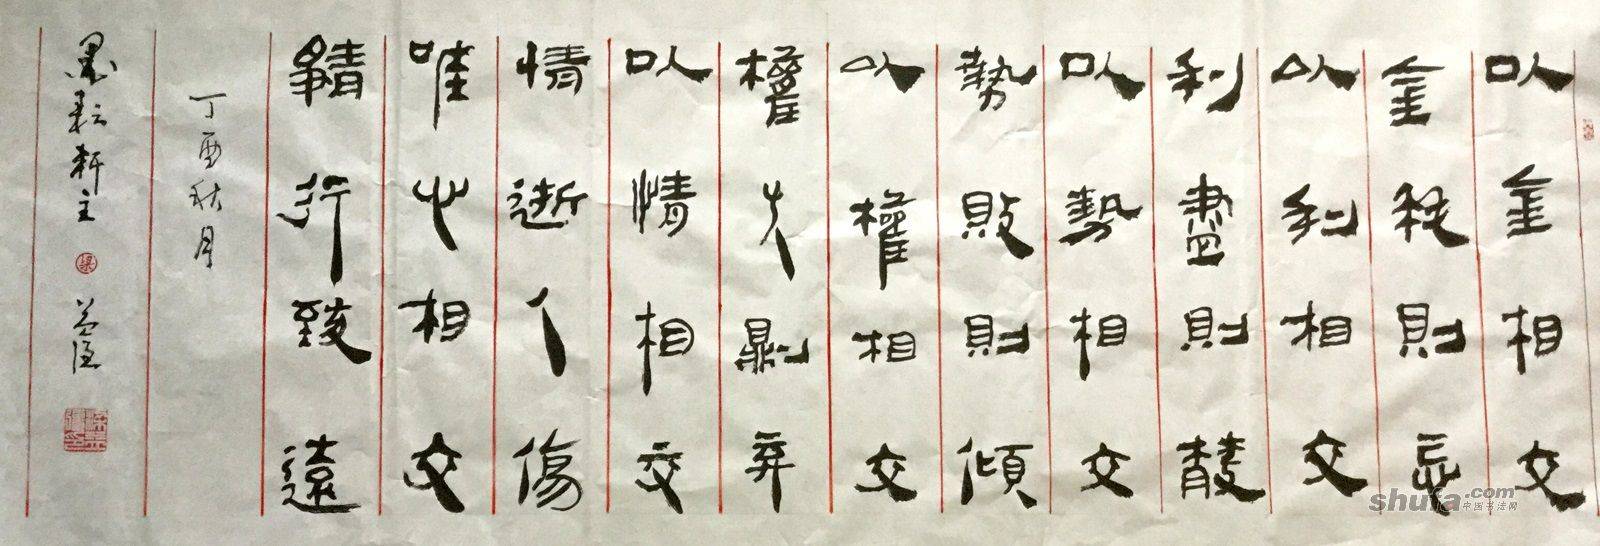 以金相交
金耗則忘
以利相交
利盡則散
以勢相交
勢敗則傾
以權相交
權失則弃
以情相交
情逝人傷
唯心相交
靜行致遠
丁酉秋月
墨耘軒主 益
shufa.com
中国书法网